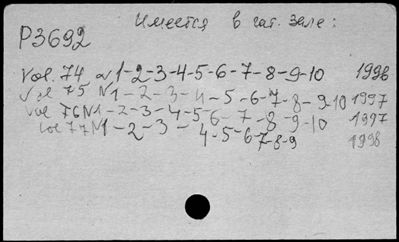 Имеется в чит. зале:
P3692
Vol. 74 N1-2-3-4-5-6-7-8-9-10 1996
Vol 75 N1-2-3-4-5-6-7-8-9-10 1997
Vol 76 N1-2-3-4-5-6-7-8-9-10 1997
Vol 77 N1-2-3-4-5-6-7-8-9 1998